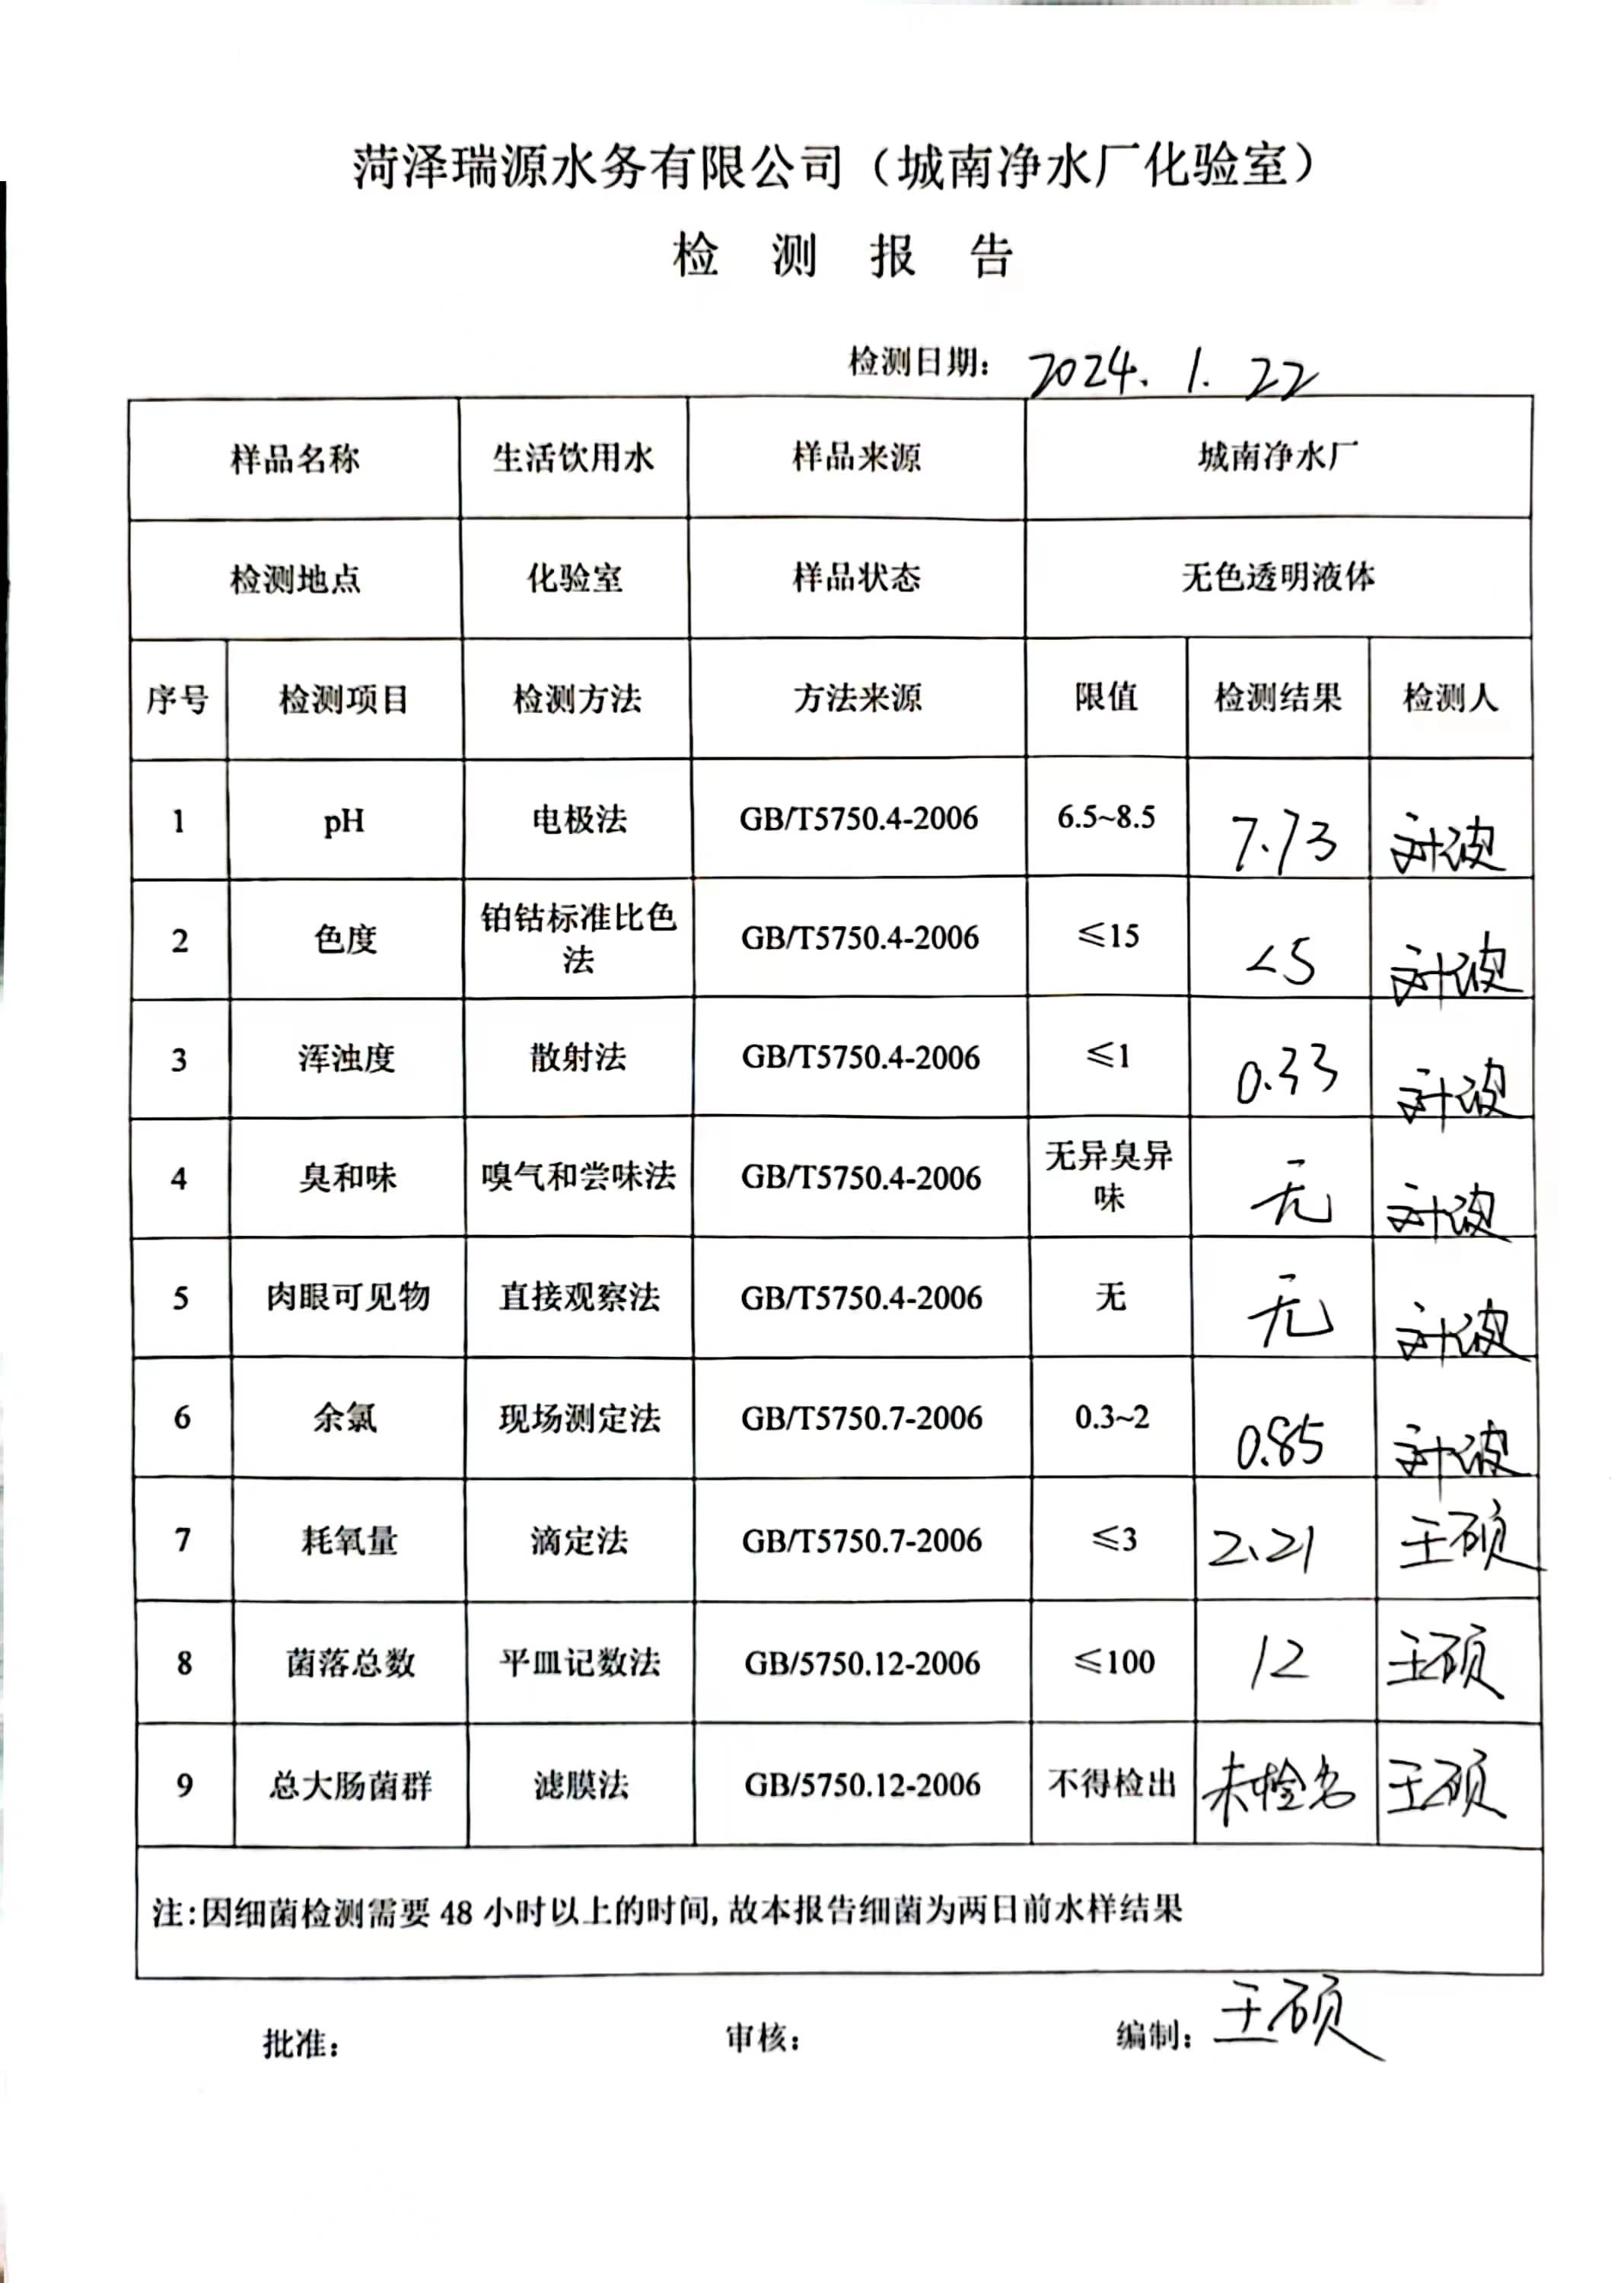 菏泽瑞源水务有限公司（城南净水厂化验室）
检 测 报 告
检测日期： 2024. 1. 22
样品名称 生活饮用水 样品来源 城南净水厂
检测地点 化验室 样品状态 无色透明液体
序号 检测项目 检测方法 方法来源 限值 检测结果 检测人
1 pH 电极法 GB/T5750.4-2006 6.5~8.5 7.73 刘波
2 色度 铂钴标准比色法 GB/T5750.4-2006 ≤15 <5 刘波
3 浑浊度 散射法 GB/T5750.4-2006 ≤1 0.33 刘波
4 臭和味 嗅气和尝味法 GB/T5750.4-2006 无异臭异味 无 刘波
5 肉眼可见物 直接观察法 GB/T5750.4-2006 无 无 刘波
6 余氯 现场测定法 GB/T5750.7-2006 0.3~2 0.85 刘波
7 耗氧量 滴定法 GB/T5750.7-2006 ≤3 2.21 王硕
8 菌落总数 平皿记数法 GB/5750.12-2006 ≤100 12 王硕
9 总大肠菌群 滤膜法 GB/5750.12-2006 不得检出 未检出 王硕
注：因细菌检测需要 48 小时以上的时间，故本报告细菌为两日前水样结果
批准： 审核： 编制：王硕